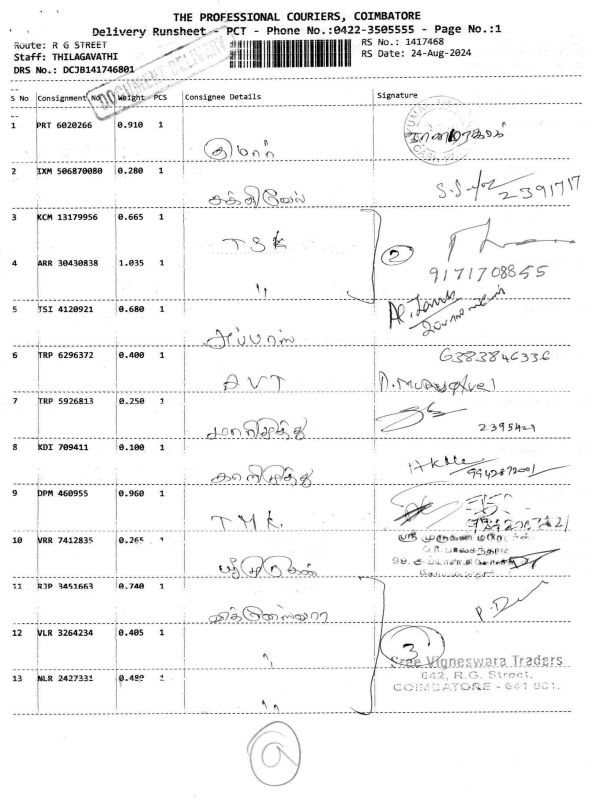 THE PROFESSIONAL COURIERS, COIMBATORE
Delivery Runsheet - PCT - Phone No.:0422-3505555 - Page No.:1
Route: R G STREET RS No.: 1417468
Staff: THILAGAVATHI RS Date: 24-Aug-2024
DRS No.: DCJB141746801
DOCUMENT DELIVERY
S No Consignment No Weight PCS Consignee Details Signature
1 PRT 6020266 0.910 1
குமார்
2 IXM 506870080 0.280 1
சக்திவேல் 2391717
3 KCM 13179956 0.665 1
TSK 2
4 ARR 30430838 1.035 1 9171708855
"
5 TSI 4120921 0.680 1
அப்பாஸ்
6 TRP 6296372 0.400 1 6383846336
AVT
7 TRP 5926813 0.250 1
மாரிமுத்து 2395421
8 KDI 709411 0.100 1
காளிமுத்து 9942872001
9 DPM 460955 0.960 1
TMK.
10 VRR 7412835 0.265 1
ஸ்ரீமுருகன்
11 RJP 3451663 0.740 1
விக்னேஸ்வரா
12 VLR 3264234 0.405 1
" 3
13 NLR 2427331 0.480 1 Sree Vigneswara Traders
642, R.G. Street,
COIMBATORE - 641 001.
"
9